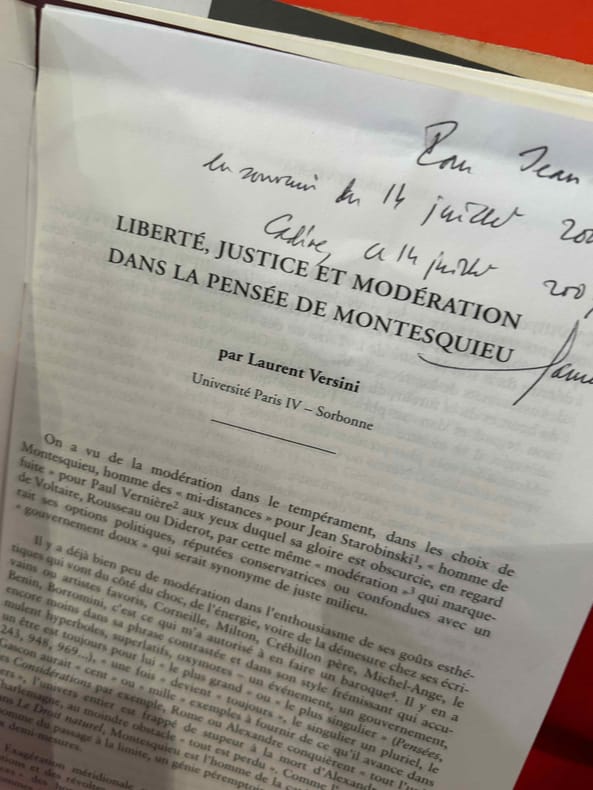 Pour Jean
en souvenir du 14 juillet 200
ce 14 juillet 200
LIBERTÉ, JUSTICE ET MODÉRATION
DANS LA PENSÉE DE MONTESQUIEU
par Laurent Versini
Université Paris IV – Sorbonne
On a vu de la modération dans le tempérament, dans les choix de
Montesquieu, homme des « mi-distances » pour Jean Starobinski¹, « homme de
fuite » pour Paul Vernière² aux yeux duquel sa gloire est obscurcie, en regard
de Voltaire, Rousseau ou Diderot, par cette même « modération »³ qui marque-
rait ses options politiques, réputées conservatrices ou confondues avec un
« gouvernement doux » qui serait synonyme de juste milieu.
Il y a déjà bien peu de modération dans l'enthousiasme de ses goûts esthé-
tiques qui vont du côté du choc, de l'énergie, voire de la démesure chez ses écri-
vains ou artistes favoris, Corneille, Milton, Crébillon père, Michel-Ange, le
Benin, Borromini, c'est ce qui m'a autorisé à en faire un baroque⁴. Il y en a
encore moins dans sa phrase contrastée et dans son style frémissant qui accu-
mulent hyperboles, superlatifs, oxymores – un événement, un gouvernement,
un être est toujours pour lui « le plus grand » ou « le plus singulier » (Pensées,
243, 948, 969...), « une fois » devient « toujours », le singulier un pluriel, le
Gascon aurait « cent » ou « mille » exemples à fournir de ce qu'il avance dans
es Considérations par exemple, Rome ou Alexandre conquièrent « tout l'uni
ers », l'univers entier est frappé de stupeur à la mort d'Alexandre
harlemagne, au moindre obstacle « tout est perdu ». Comme l'
ans Le Droit naturel, Montesquieu est l'homme de la
omme du passage à la limite, un génie péremptoire
demi-mesures.
Exagération méridionale
tions et des révoltes